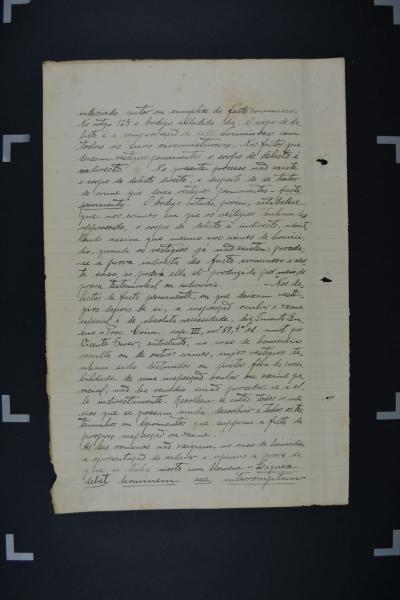 indiciado autor ou cumplice do facto criminoso.
No artigo 123 o Codigo alludido diz: O corpo de de-
licto é a comprovação do facto criminoso com
todas as suas circumstancias. Nos factos que
deixam vestigios permanentes o corpo de delicto é
directo. No presente processo não existe
o corpo de delicto directo, a despeito de se tratar
de crime que deixa vestigios permanentes - facto
permanente. O Codigo citado, porem, estabelece
que nos crimes em que os vestigios tenham des-
apparecido, o corpo de delicto é indirecto,
assim que mesmo nos crimes de homici-
dio, quando os vestigios já não existem, proceda-
se á prova indirecta do facto criminoso e nes-
te caso, só poderá ella ser produzida por meio de
prova testemunhal ou indiciaria. - Nos de-
lictos de facto permanente, ou que deixam vesti-
gios depois de si, a inspecção ocular e exame
especial é de absoluta necessidade, diz Pimenta Bu-
eno - Proc. Crim. cap. III, nº 69, 4ª ed. annot. por
Vicente Ferrer; entretanto, no caso de homicidio
occulto ou de outros crimes, cujos vestigios te-
nham sido destruidos ou postos fóra da possi-
bilidade de uma inspecção ocular ou exame pe-
ricial, não ha remedio senão proceder-se a el-
le indirectamente. Recolhem-se então todos os indi-
cios que se possam ainda descobrir e todos os tes-
temunhos ou documentos que suppram a falta da
propria inspecção ou exame.
As leis romanas não exigiam, no caso de homicidio,
a apresentação do cadaver e apenas a prova de
que se tinha morto um homem - Liquere
debet hominem esse interemptum